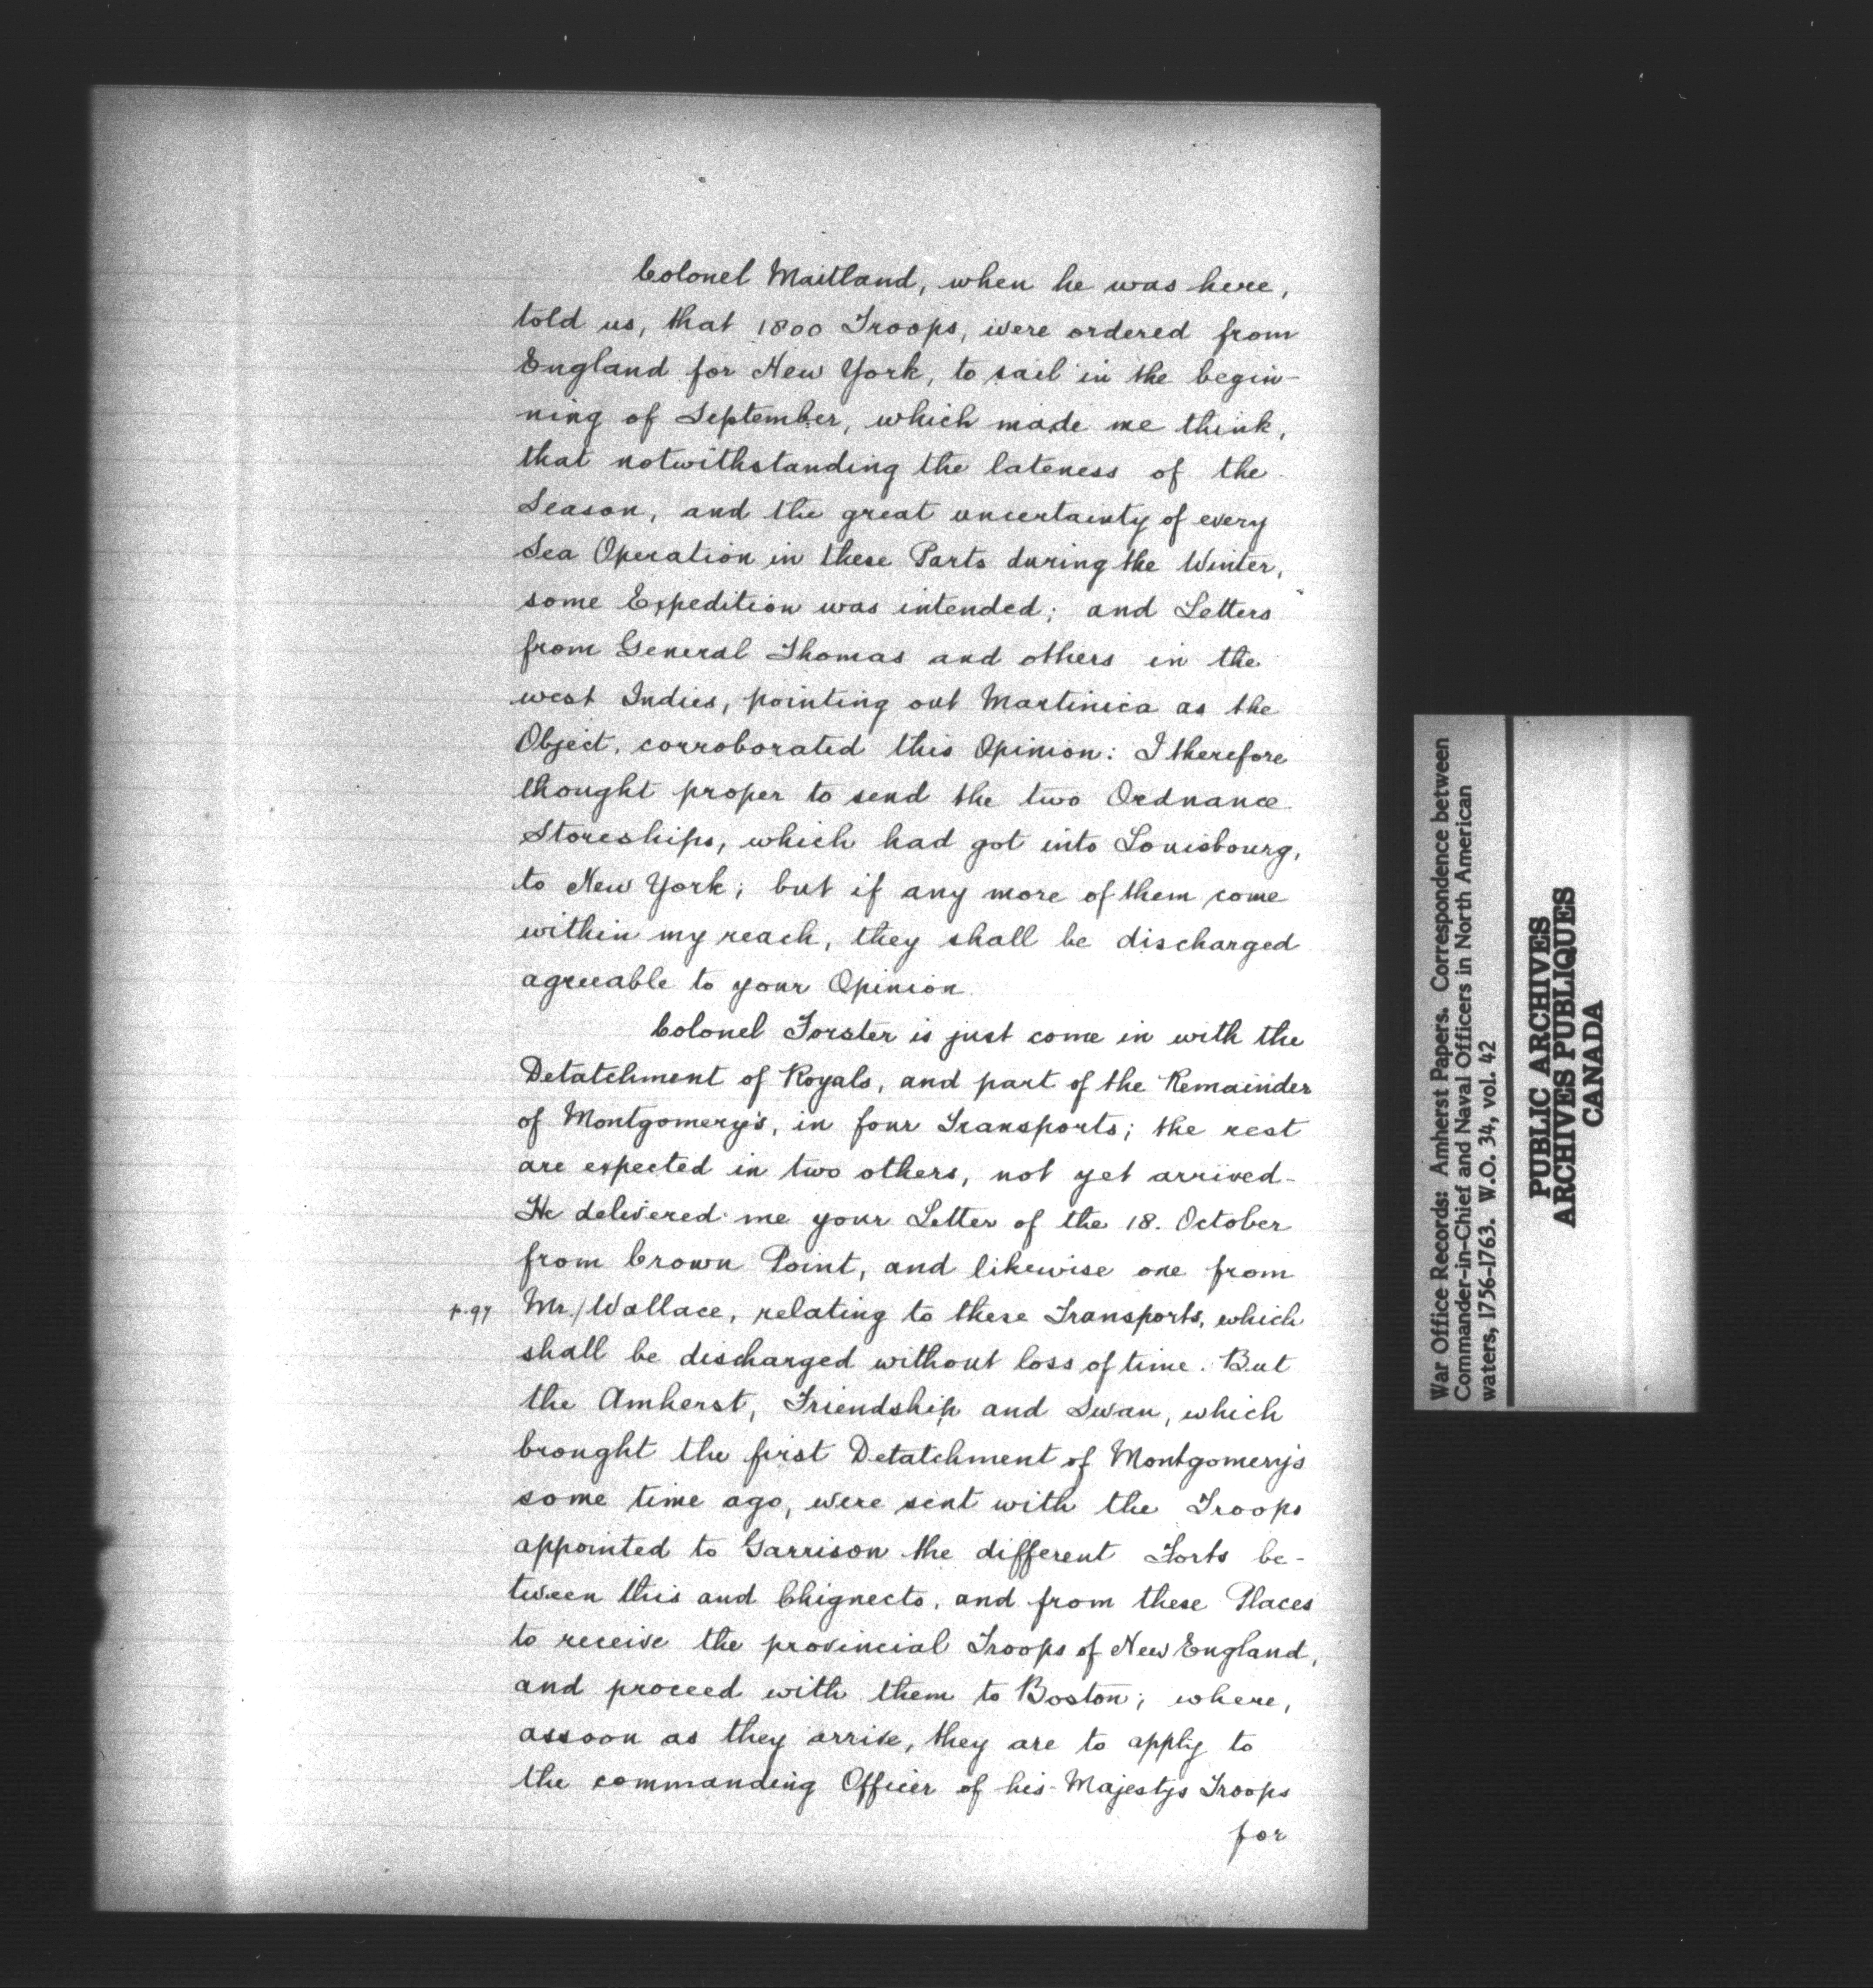 Colonel Maitland, when he was here,
told us, that 1800 Troops, were ordered from
England for New York, to sail in the begin-
ning of September, which made me think,
that notwithstanding the lateness of the
Season, and the great uncertainty of every
Sea Operation in these Parts during the Winter,
some Expedition was intended; and Letters
from General Thomas and others in the
west Indies, pointing out Martinica as the
Object, corroborated this Opinion: I therefore
thought proper to send the two Ordnance
Storeships, which had got into Louisbourg,
to New York; but if any more of them come
within my reach, they shall be discharged
agreeable to your Opinion.
Colonel Forster is just come in with the
Detatchment of Royals, and part of the Remainder
of Montgomery's, in four Transports; the rest
are expected in two others, not yet arrived-
He delivered me your Letter of the 18. October
from Crown Point, and likewise one from
p.97 Mr. / Wallace, relating to these Transports, which
shall be discharged without loss of time. But
the Amherst, Friendship and Swan, which
brought the first Detatchment of Montgomerys
some time ago, were sent with the Troops
appointed to Garrison the different Forts be-
tween this and Chignecto, and from these Places
to receive the provincial Troops of New England,
and proceed with them to Boston; where,
assoon as they arrive, they are to apply to
the commanding Officer of his Majestys Troops
for
War Office Records: Amherst Papers. Correspondence between
Commander-in-Chief and Naval Officers in North American
waters, 1756-1763. W.O. 34, vol. 42
PUBLIC ARCHIVES
ARCHIVES PUBLIQUES
CANADA